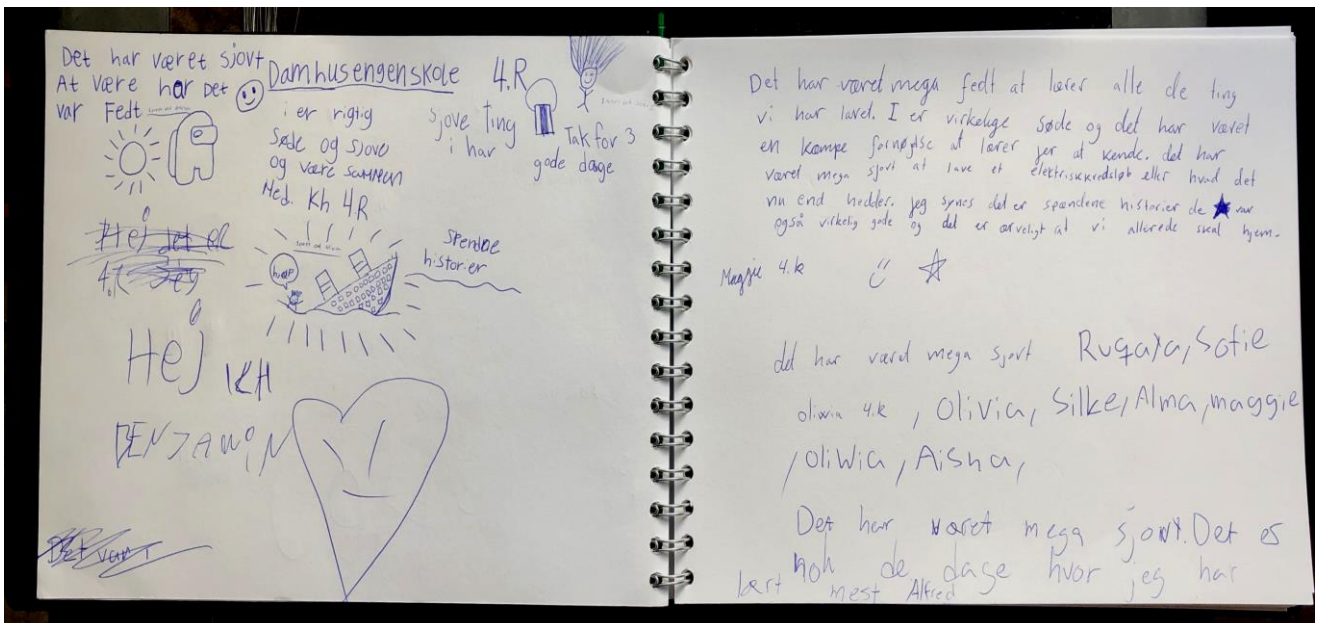 Det har været sjovt
At være her Det
var Fedt
Damhusengenskole 4.R
i er rigtig
søde og sjove
og være sammen
Med. Kh 4.R
sjove Ting
i har
Tak for 3
gode dage
Hej det er
4.
hjælp
Spendne
historier
Hej
KH
BENJAMIN
Det var
Det har været mega fedt at lærer alle de ting
vi har lavet. I er virkelige søde og det har været
en kæmpe fornøjelse at lærer jer at kende. det har
været mega sjovt at lave et elektriskkredsløb eller hvad det
nu end hedder. jeg synes det er spændene historier de var
også virkelig gode og det er ærveligt at vi allerede skal hjem.
Maggie 4.k
det har været mega sjovt Ruqaya, Sofie
oliwia 4.k , Olivia, Silke, Alma, maggie
, oliwia, Aisha,
Det har været mega sjovt. Det er
nok de dage hvor jeg har
lært mest Alfred